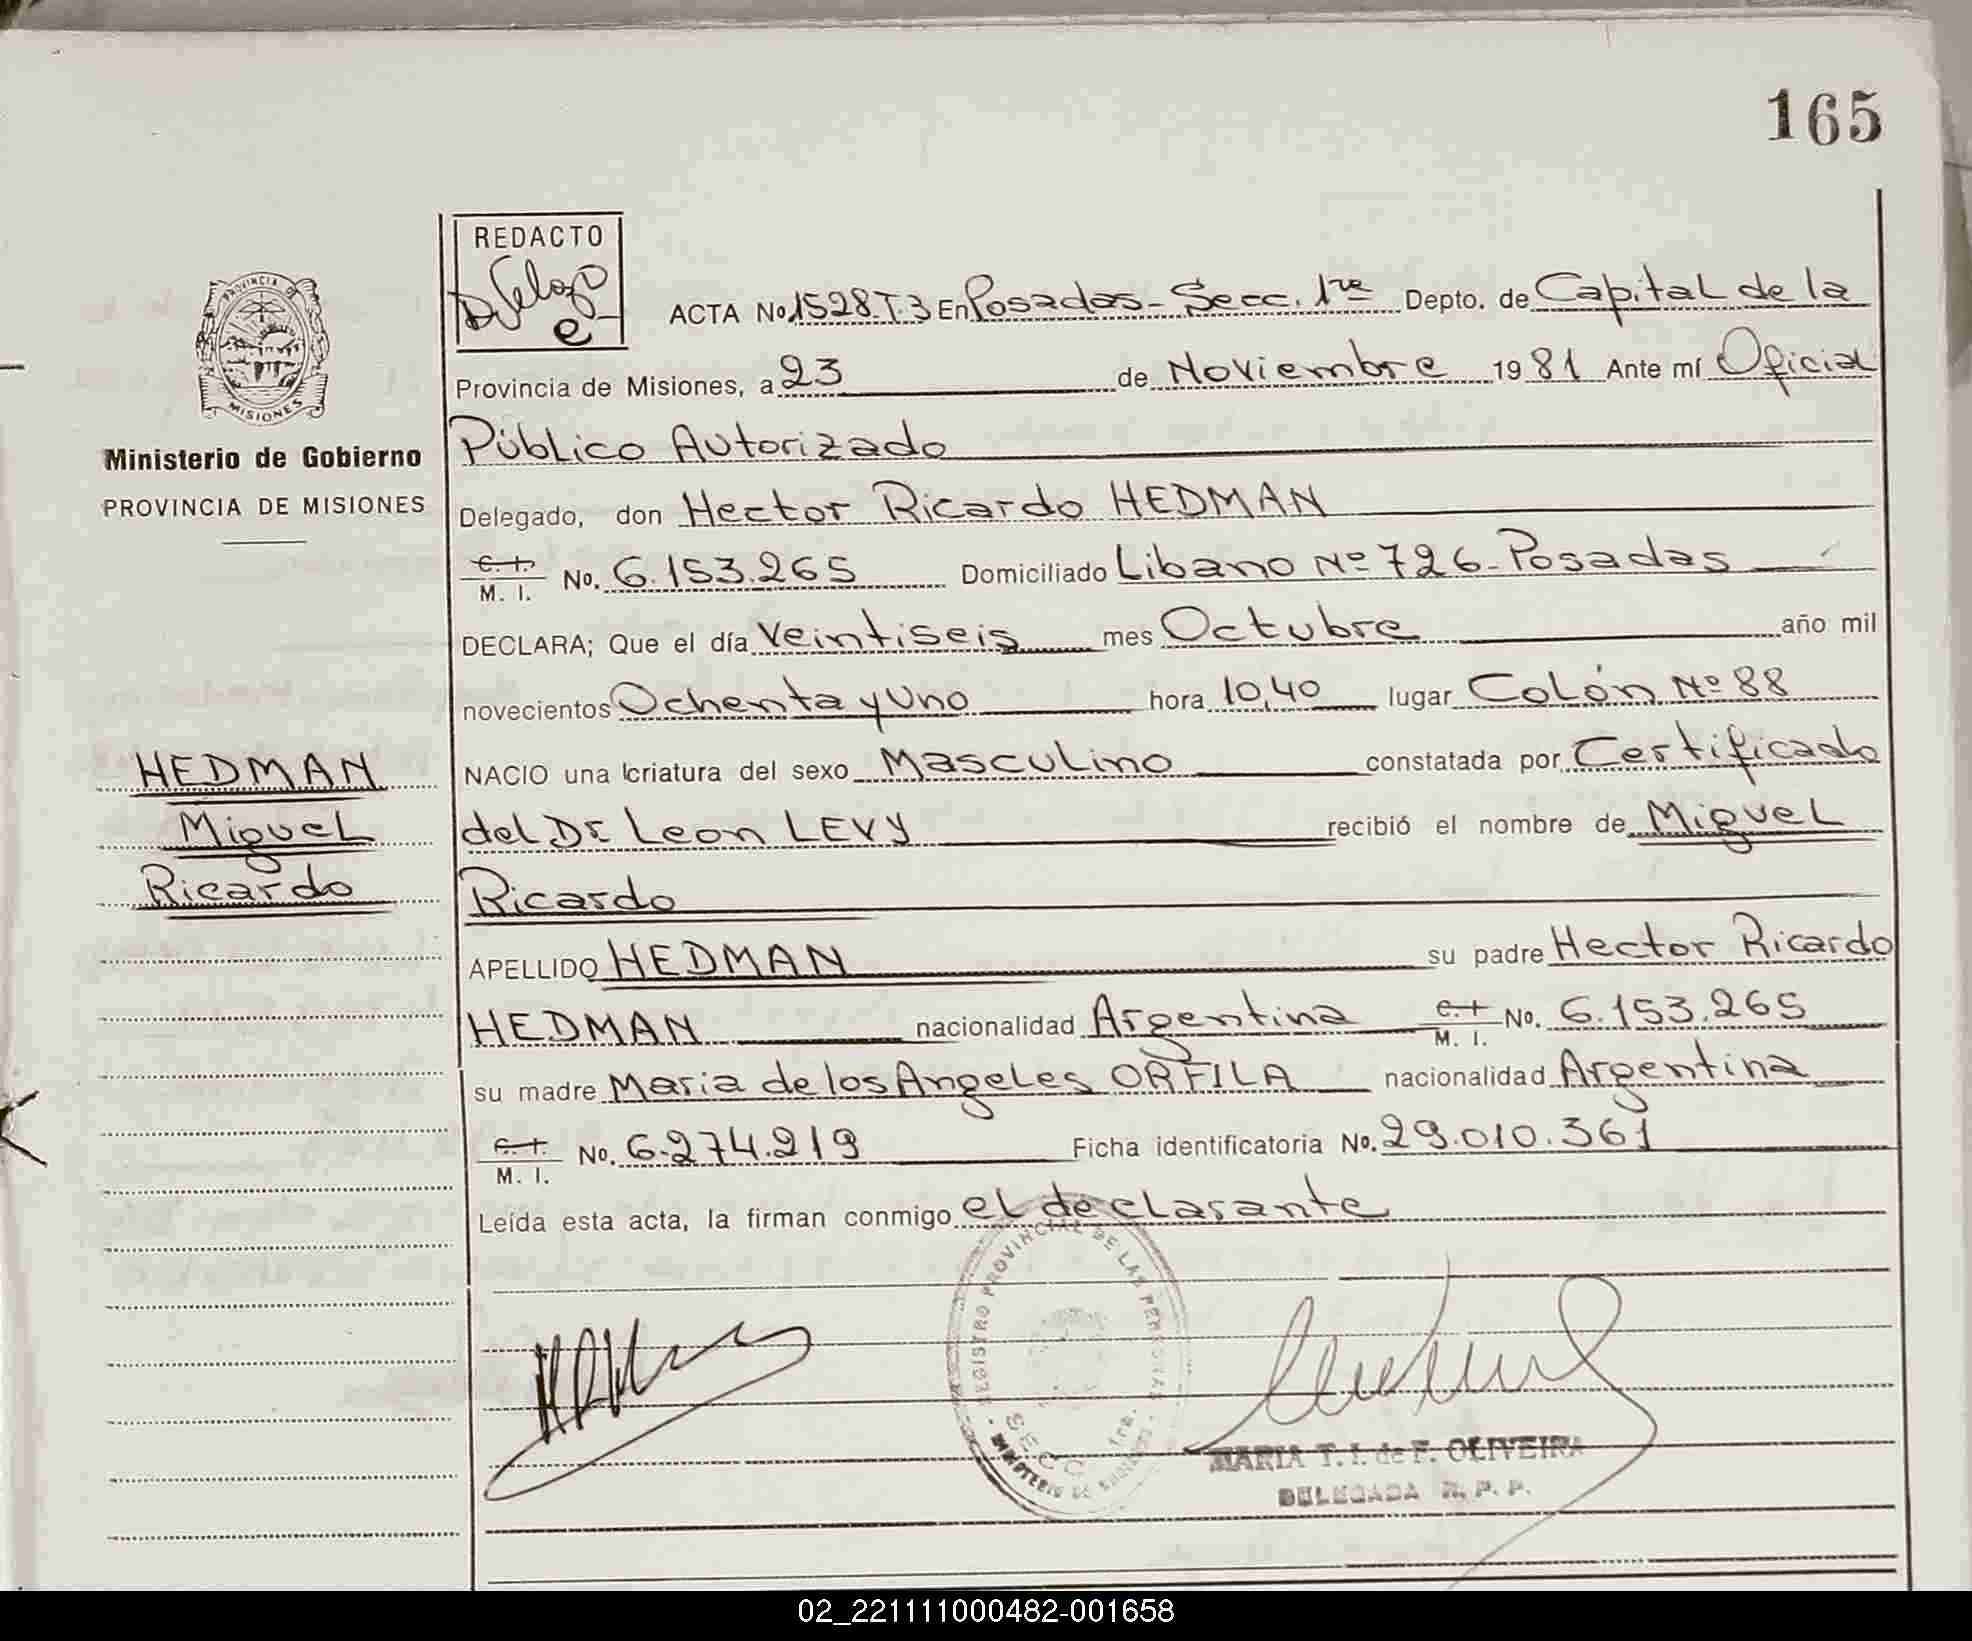 165
REDACTO
ACTA No. 1528.T.3 En Posadas - Secc. 1ra Depto. de Capital de la
Provincia de Misiones, a 23 de Noviembre 1981 Ante mí Oficial
Público Autorizado
PROVINCIA DE
MISIONES
Ministerio de Gobierno
PROVINCIA DE MISIONES
Delegado, don Hector Ricardo HEDMAN
C. I.
M. I. No. 6.153.265 Domiciliado Libano Nº 726 - Posadas
DECLARA; Que el día Veintiseis mes Octubre año mil
novecientos Ochenta y Uno hora 10,40 lugar Colón Nº 88
NACIO una criatura del sexo Masculino constatada por Certificado
del Dr Leon LEVY recibió el nombre de Miguel
Ricardo
HEDMAN
Miguel
Ricardo
APELLIDO HEDMAN su padre Hector Ricardo
HEDMAN nacionalidad Argentina C. I. M. I. No. 6.153.265
su madre Maria de los Angeles ORFILA nacionalidad Argentina
C. I.
M. I. No. 6.274.219 Ficha identificatoria No. 29.010.361
Leída esta acta, la firman conmigo el declarante
REGISTRO PROVINCIAL DE LAS PERSONAS
SECC. 1ra.
MINISTERIO DE GOBIERNO
MARIA T. I. de F. OLIVEIRA
DELEGADA R. P. P.
02_221111000482-001658